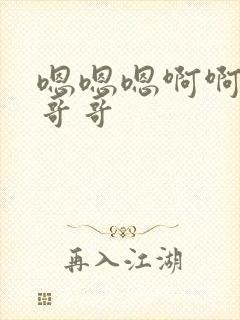 嗯嗯嗯啊啊
哥哥
再入江湖